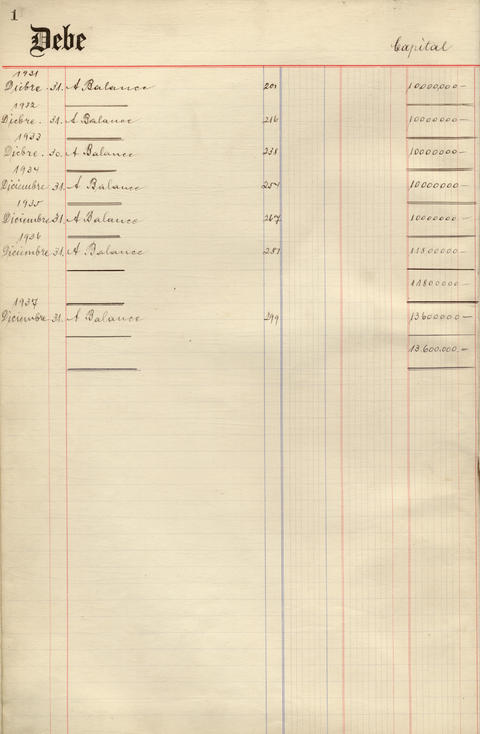 1
Debe
Capital
1931
Dicbre. 31. A Balance 201 10000000—
1932
Dicbre. 31. A Balance 216 10000000—
1933
Dicbre. 30. A Balance 10000000—
1934
Diciembre 31. A Balance 254 10000000—
1935
Diciembre 31. A Balance 267 10000000—
1936
Diciembre 31. A Balance 11800000—
11800000—
1937
Diciembre 31. A Balance 299 13600000—
13.600.000.—